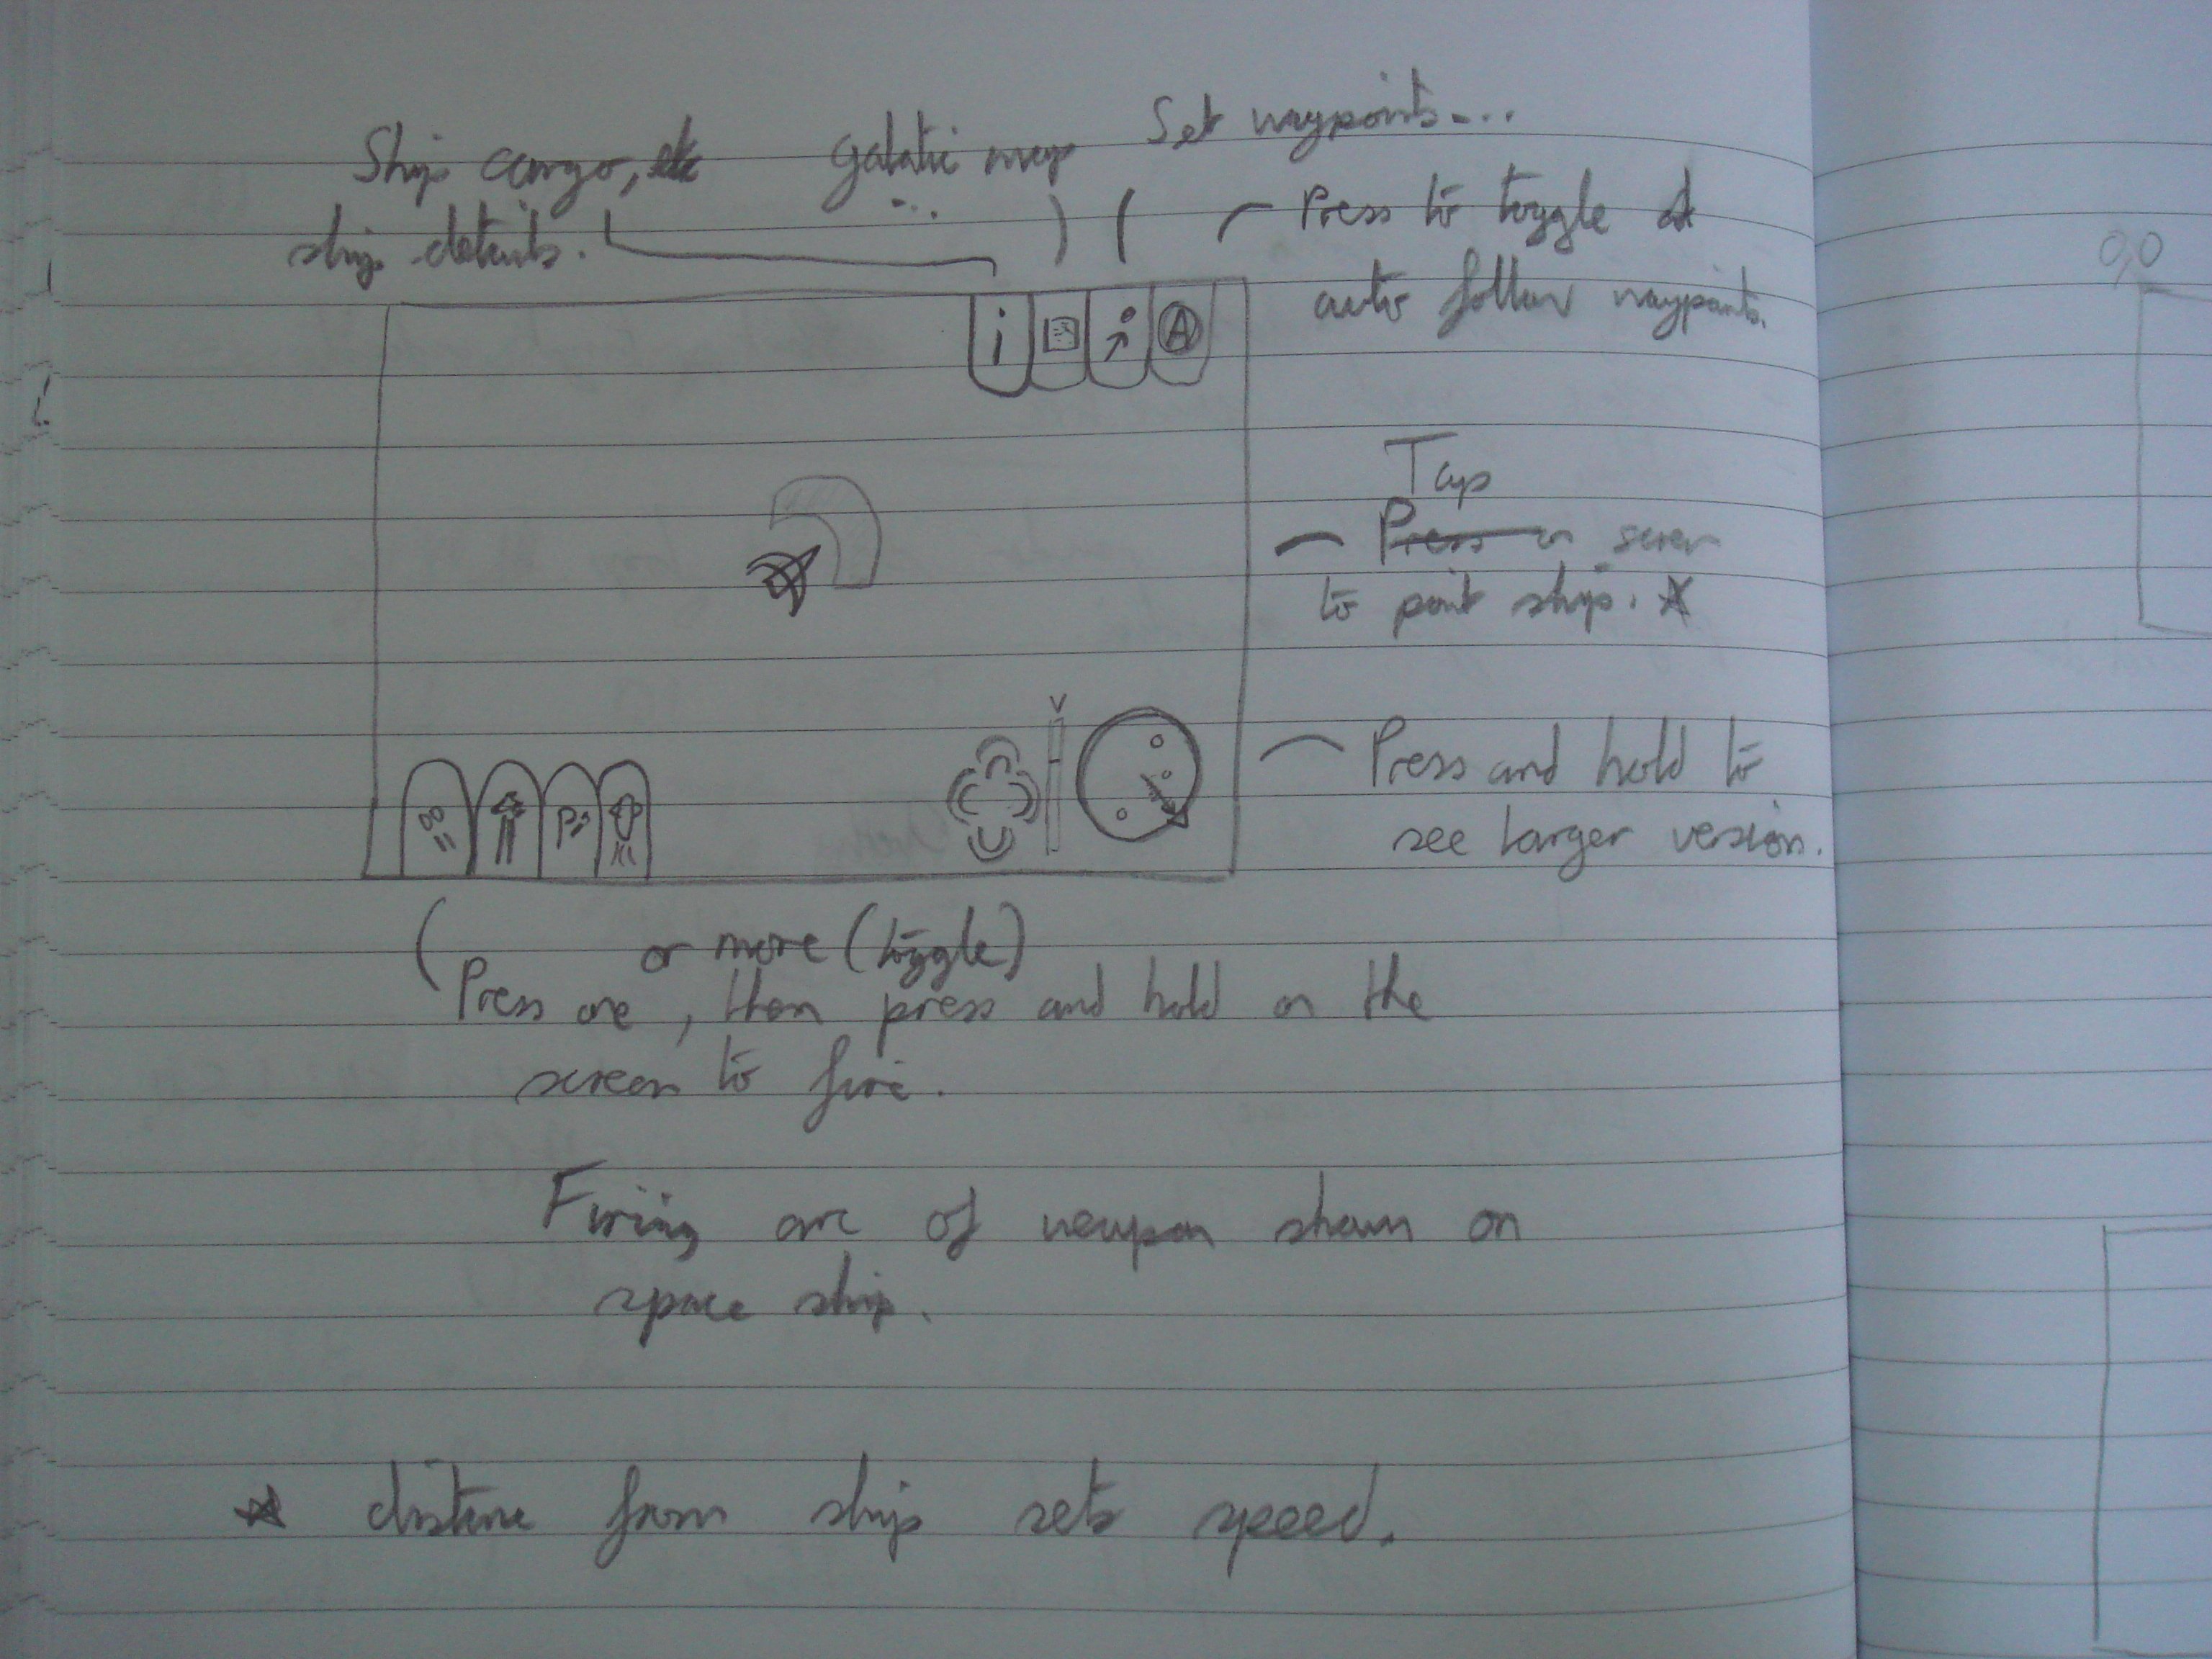 Ship cargo, etc
ship details.
galatic map
...
Set waypoints....
Press to toggle
auto follow waypoints.
i
A
Tap
Press on screen
to point ship. *
v
Press and hold to
see larger version.
or more (toggle)
Press one, then press and hold on the
screen to fire.
Firing arc of weapon shown on
space ship.
* distance from ship sets speed.
0,0